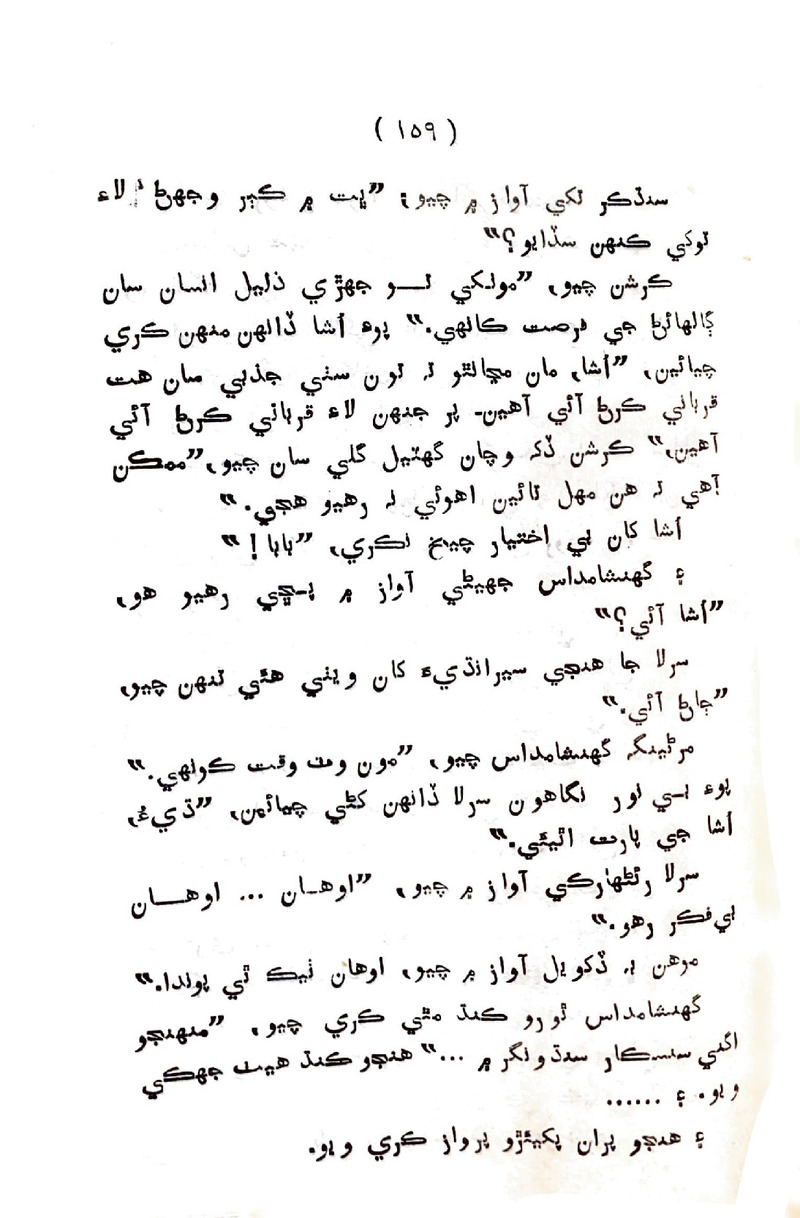 ( ۱۵۹ )
سڌڪر تکي آواز ۾ چيو، ”ڀت ۾ ڪير وجهڻ لاءِ
توکي ڪنهن سڏايو؟“
ڪرشن چيو، ”مونکي تو جهڙي ذليل انسان سان
ڳالهائڻ جي فرصت ڪانهي.“ پوءِ اُشا ڏانهن منهن ڪري
چيائين، ”اُشا، مان مڃانٿو تہ تون سٺي جذبي سان هت
قرباني ڪرڻ آئي آهين۔ پر جنهن لاءِ قرباني ڪرڻ آئي
آهين،“ ڪرشن ڏک وچان گهٽيل گلي سان چيو، ”ممڪن
آهي تہ هن مهل تائين اهوئي نہ رهيو هجي.“
اُشا کان بي اختيار چيخ نڪري، ”بابا!“
۽ گهنشامداس جهيڻي آواز ۾ پڇي رهيو هو،
”اُشا آئي؟“
سرلا جا هنجي سيرانڌيءَ کان ويٺي هئي تنهن چيو،
”ڄاڻ آئي.“
مرڻينگ گهنشامداس چيو، ”مون وٽ وقت ڪونهي.“
پوءِ بي نور نگاهون سرلا ڏانهن کڻي چيائين، ”ڌيءُ،
اُشا جي پارت اٿيئي.“
سرلا رئڻهارڪي آواز ۾ چيو، ”اوهان ... اوهان
بي فڪر رهو.“
موهن بہ ڏکويل آواز ۾ چيو، اوهان ٺيڪ ٿي پوندا.“
گهنشامداس ٿورو ڪنڌ مٿي ڪري چيو، ”منهنجو
اگني سنسڪار سڌونگر ۾ ...“ هنجو ڪنڌ هيٺ جهڪي
ويو. ۽ ......
۽ هنجو پران پکيئڙو پرواز ڪري ويو.